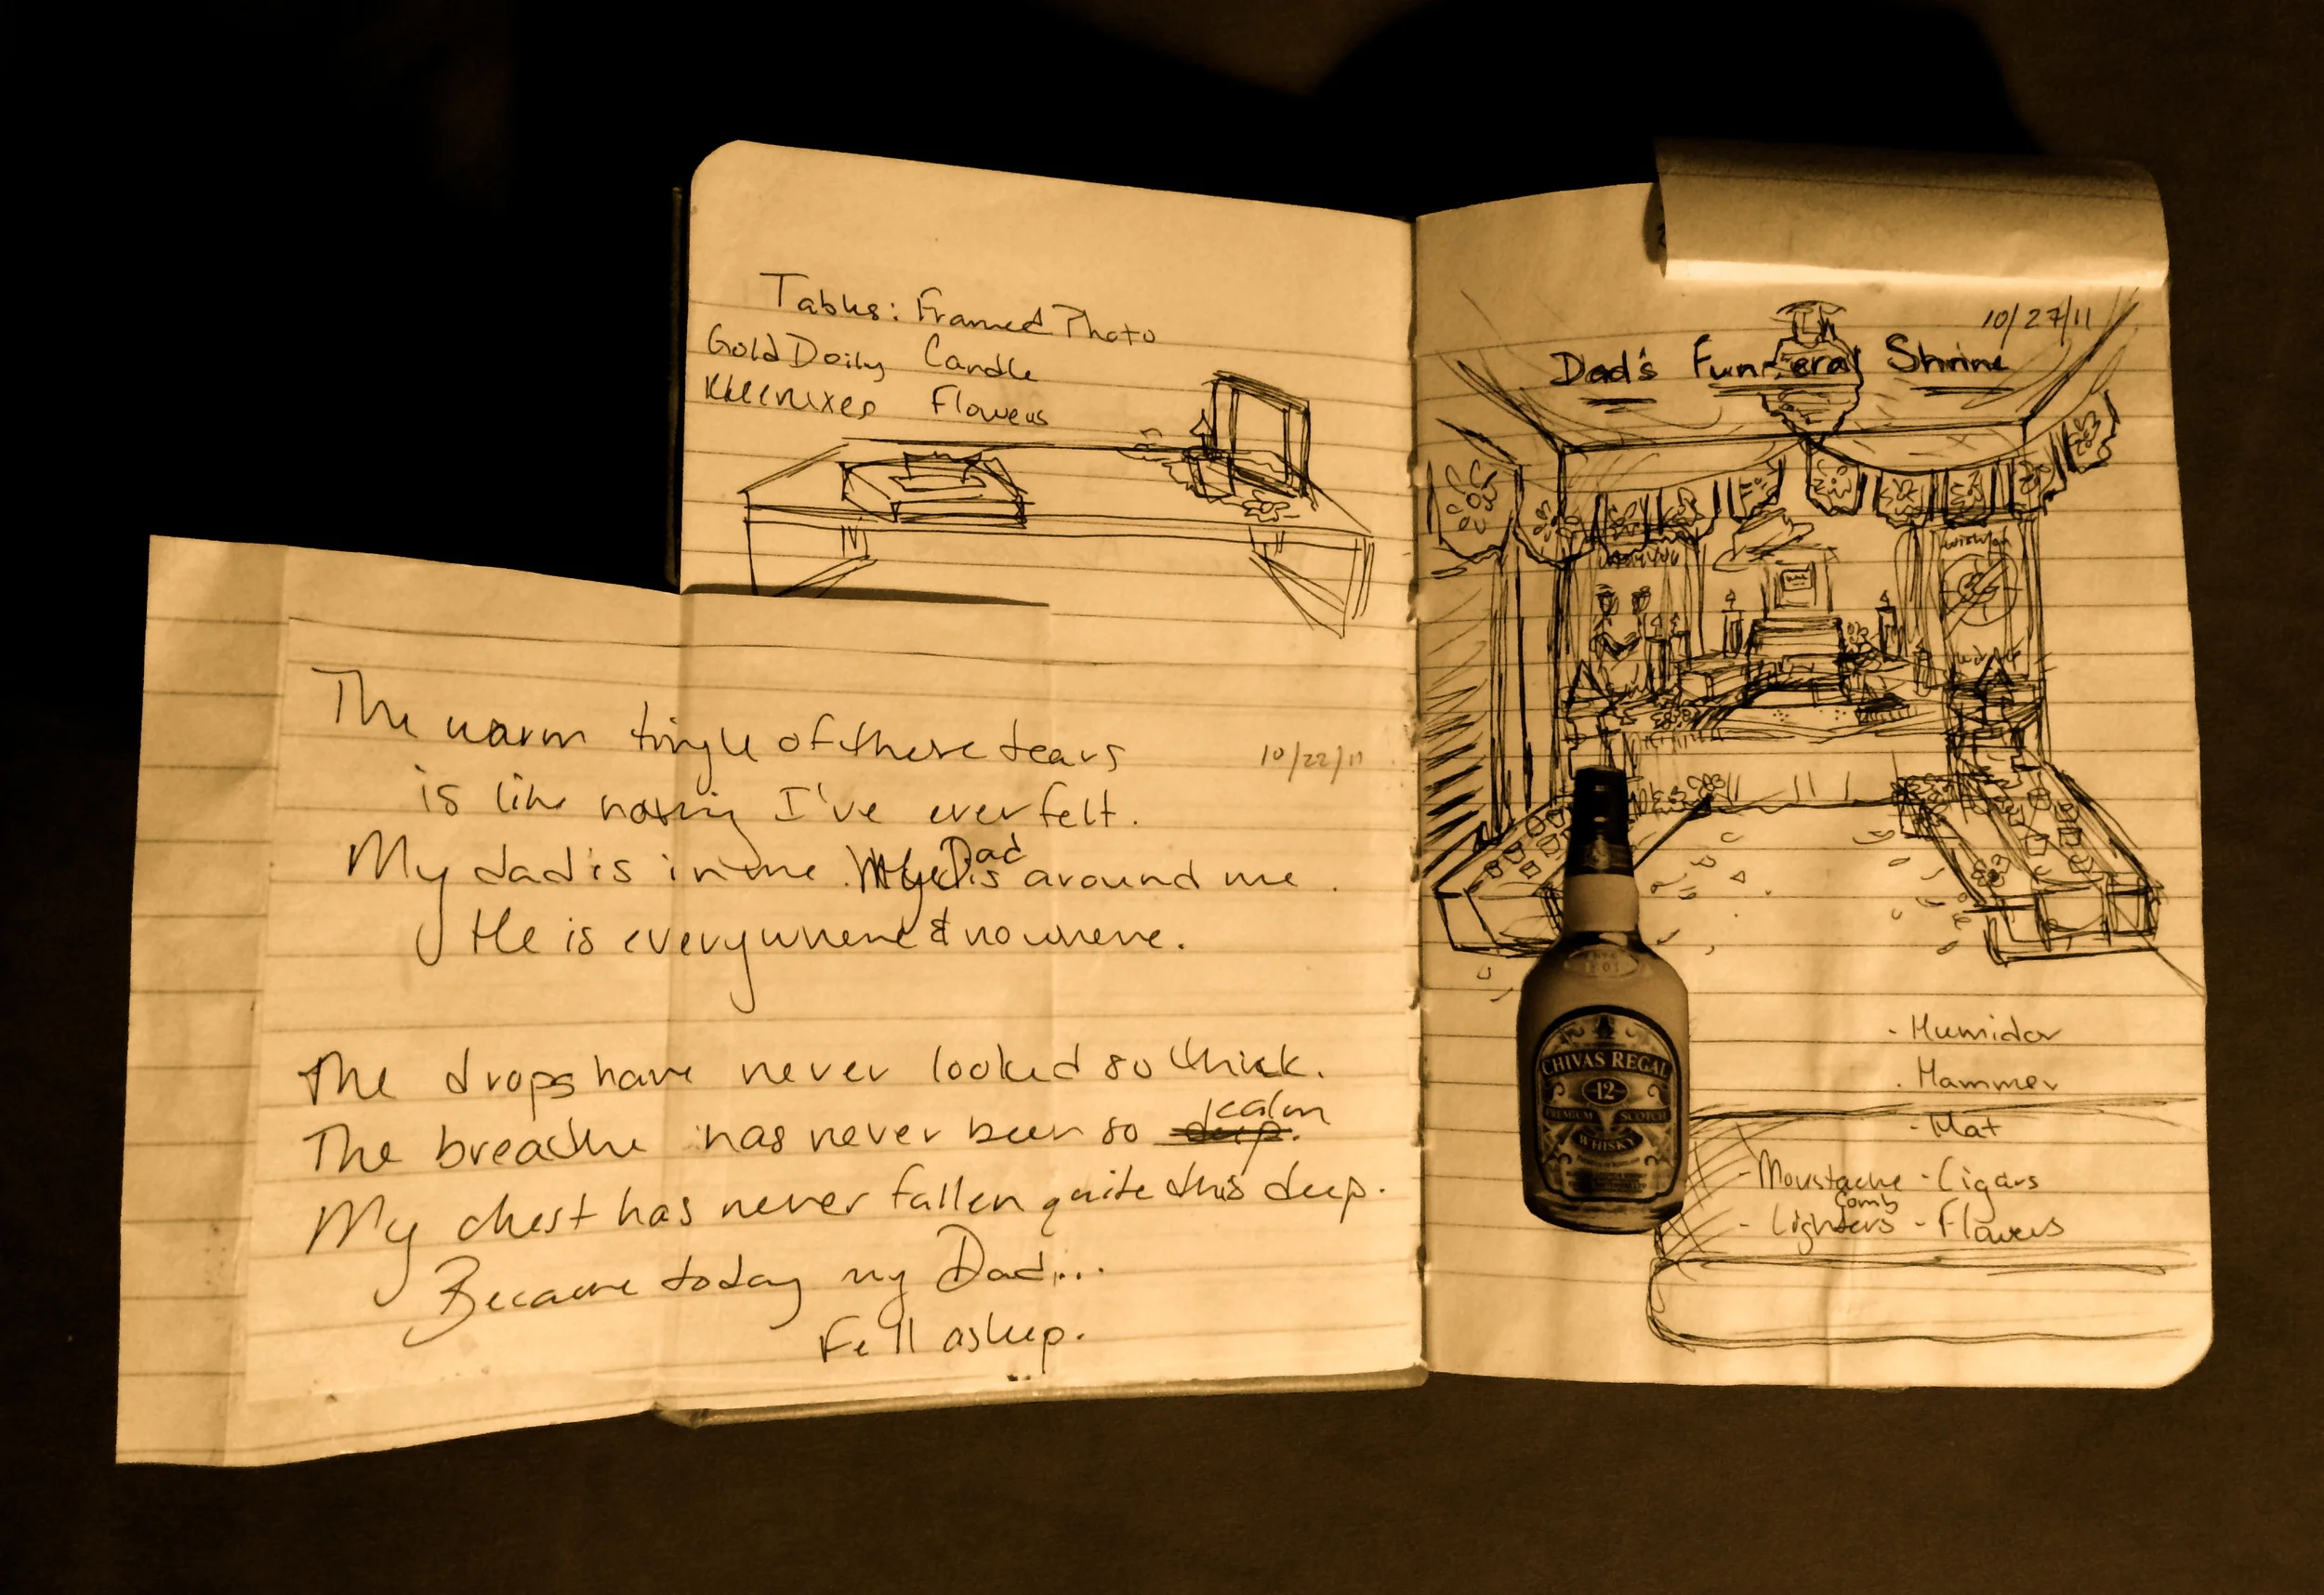 Tables: Framed Photo
Gold Doily Candle
Kleenexes Flowers
10/22/11
The warm tingle of these tears
is like nothing I've ever felt.
My dad is in me. My Dad is around me.
He is everywhere & nowhere.
The drops have never looked so thick.
The breathe has never been so deep. calm
My chest has never fallen quite this deep.
Because today my Dad...
Fell asleep.
10/27/11
Dad's Funeral Shrine
- Humidor
. Hammer
- Mat
- Moustache Comb - Cigars
- Lighters - Flowers
CHIVAS REGAL
12
PREMIUM SCOTCH
WHISKY